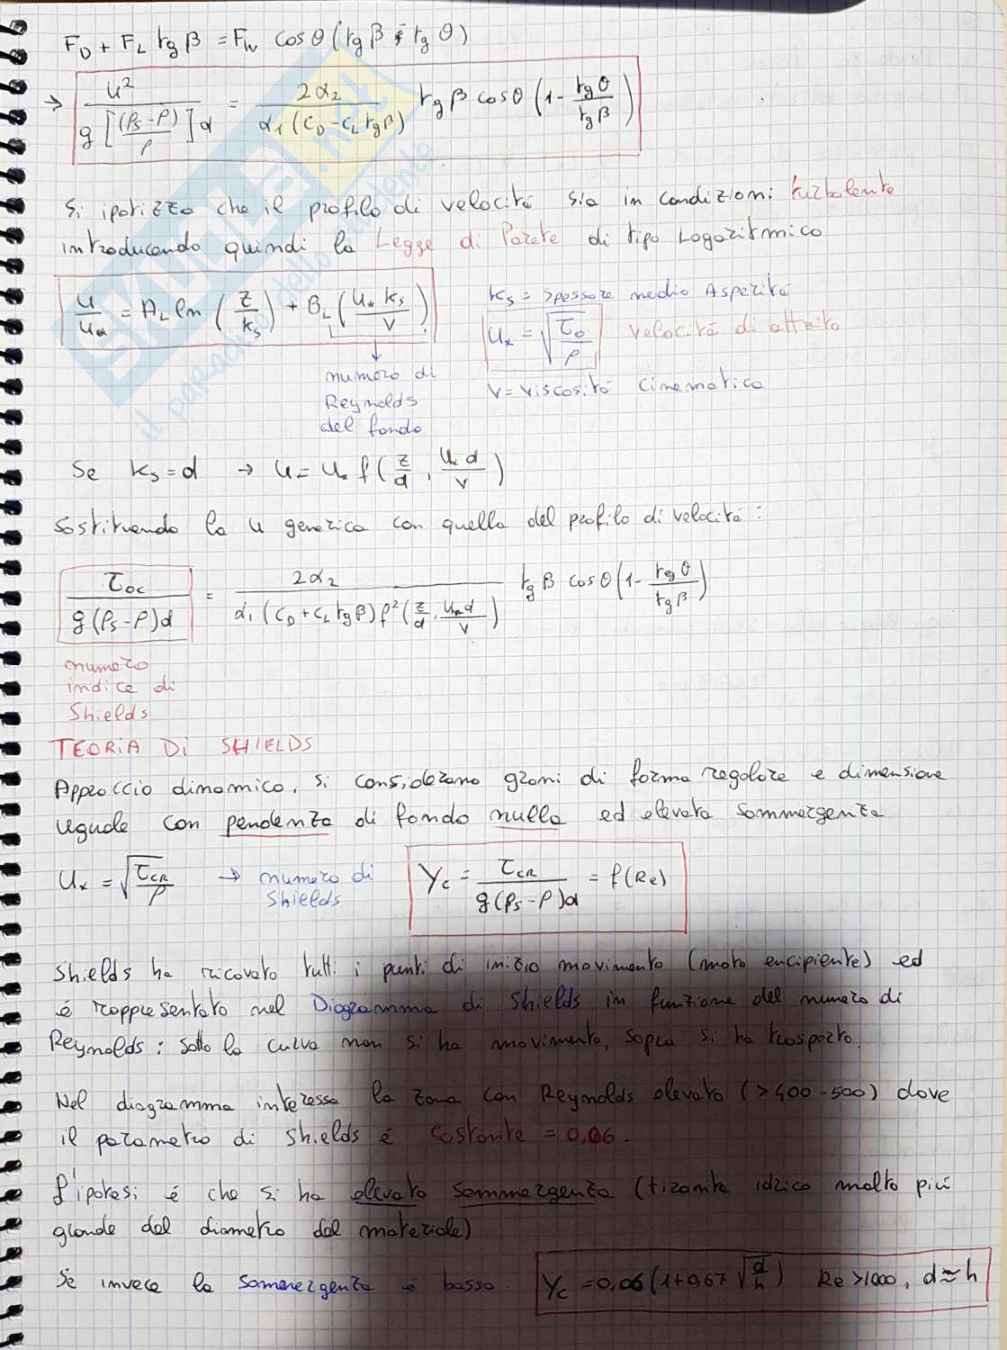 F_D + F_L tg β = F_W cos θ (tg β - tg θ)
→ u² / g [(ρ_s - ρ)/ρ] d = 2α₂ / α₁ (C_D - C_L tg β) tg β cos θ (1 - tg θ / tg β)
Si ipotizza che il profilo di velocità sia in condizioni turbolente
introducendo quindi la Legge di Parete di tipo Logaritmico
u / u_* = A_L ln (z / k_s) + B_L (u_* k_s / ν)
k_s = Spessore medio Asperità
u_* = √(τ_0 / ρ) velocità di attrito
ν = viscosità cinematica
numero di
Reynolds
del fondo
Se k_s = d → u = u_* f (z/d , u_* d / ν)
Sostituendo la u generica con quella del profilo di velocità :
τ_oc / g (ρ_s - ρ) d = 2α₂ / α₁ (C_D + C_L tg β) f² (z/d , u_* d / ν) tg β cos θ (1 - tg θ / tg β)
numero
indice di
Shields
TEORIA DI SHIELDS
Approccio dinamico, si considerano grani di forma regolare e dimensione
uguale con pendenza di fondo nulla ed elevata sommergenza
u_* = √(τ_CR / ρ) → numero di Shields
Y_c = τ_CR / g (ρ_s - ρ) d = f (Re)
Shields ha ricavato tutti i punti di inizio movimento (moto encipiente) ed
è rappresentato nel Diagramma di Shields in funzione del numero di
Reynolds : sotto la curva non si ha movimento, sopra si ha trasporto.
Nel diagramma interessa la zona con Reynolds elevato (>400-500) dove
il parametro di Shields è costante = 0,06.
L'ipotesi è che si ha elevata sommergenza (tirante idrico molto più
grande del diametro del materiale)
Se invece la sommergenza è bassa Y_c = 0,06 (1 + 0,67 √(d/h)) Re > 1000, d ≃ h
SKUOLA.net
il paradiso dello studente